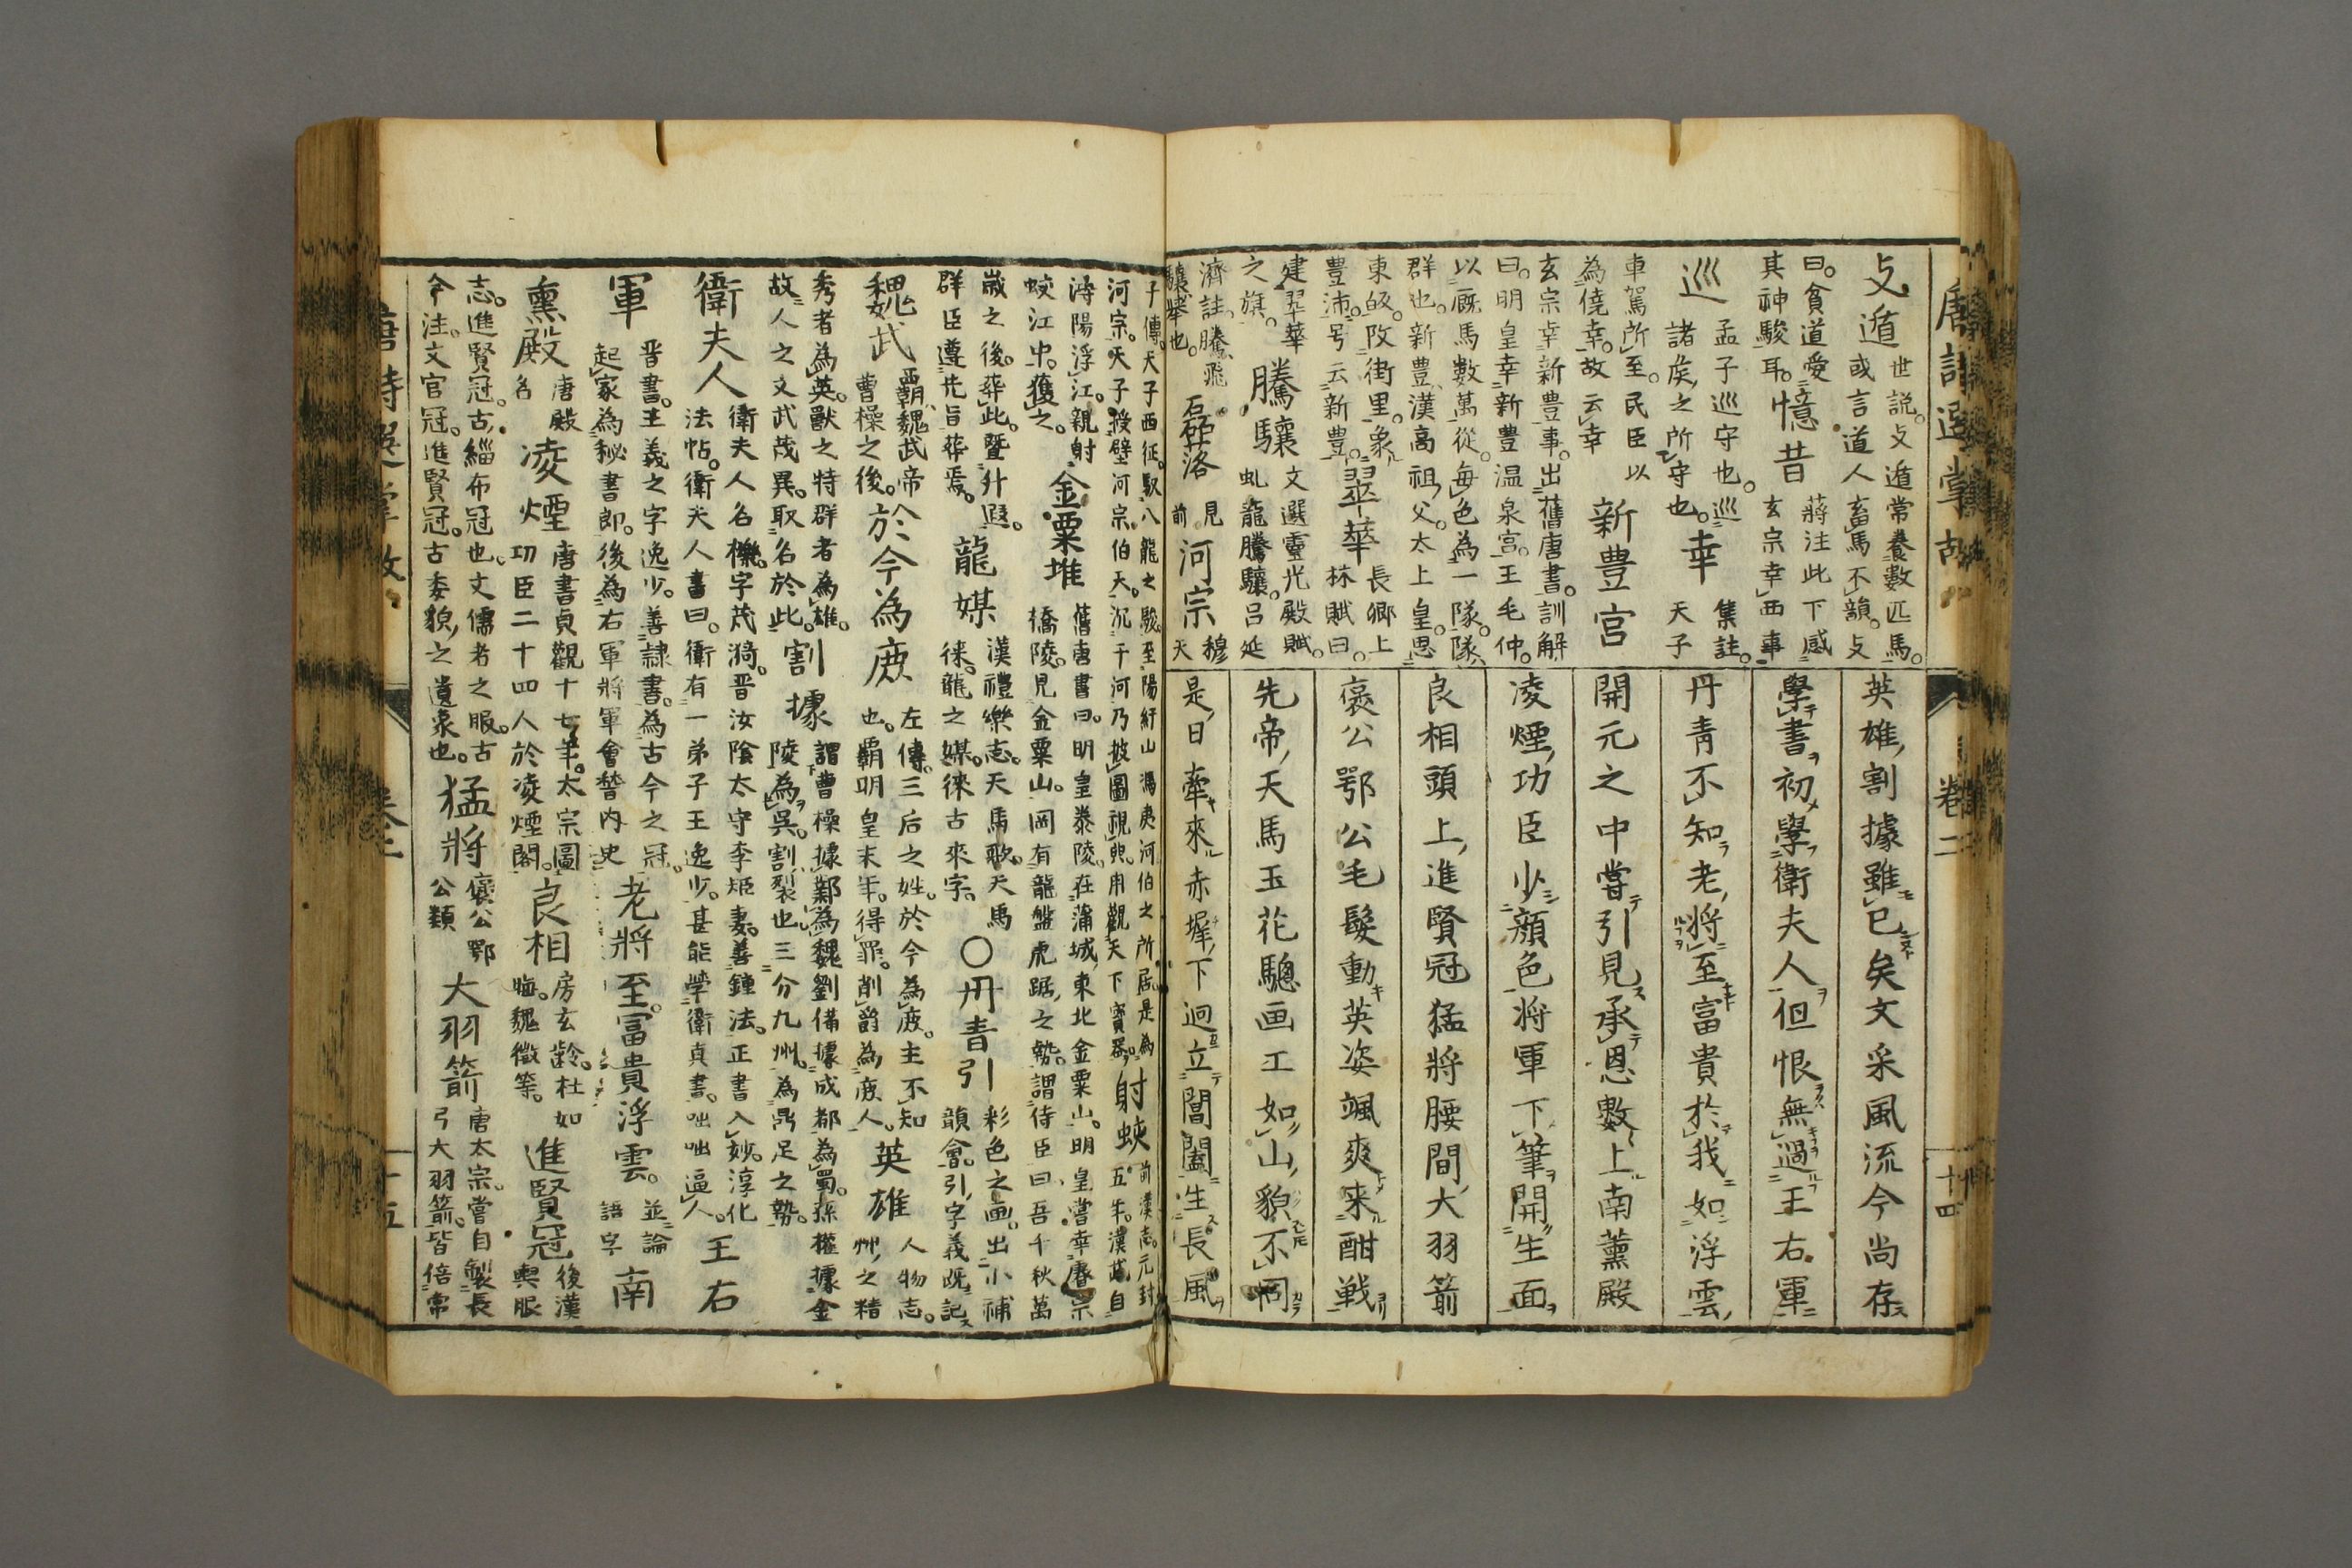 唐詩選掌故 卷二 十四
攴遁 世說。攴遁常養數匹馬。
或言道人畜馬不韻。攴
曰。貧道愛
其神駿耳。憶昔 蔣注此下感
玄宗幸西事
巡 孟子巡守也。巡
諸矦之所守也。幸 集註。
天子
車駕所至。民臣以
為僥幸。故云幸 新豊宮
玄宗幸新豊事。出舊唐書。訓解
曰。明皇幸新豊温泉宮。王毛仲。
以厩馬數萬從。每色為一隊。隊
群也。新豊漢高祖父。太上皇。思
東皈。改街里。象
豊沛。号云新豊。翠華 長卿上
林賦曰。
建翠華
之旗。騰驤 文選靈光殿賦。
虬龍騰驤。呂延
濟註。騰飛
驤举也。磊落 見
前 河宗 穆
天
英雄割據雖已矣文采風流今尚存
學書初學衛夫人但恨無過王右軍
丹青不知老將至富貴於我如浮雲
開元之中嘗引見承恩數上南薰殿
凌煙功臣少顏色將軍下筆開生面
良相頭上進賢冠猛將腰間大羽箭
褒公鄂公毛髮動英姿颯爽來酣戦
先帝天馬玉花驄画工如山貌不同
是日牽來赤墀下迥立閶闔生長風
子傳。天子西征。馭八龍之駿。至陽紆山馮夷河伯之所居是為
河宗。天子授璧河宗伯夭。沉于河乃披圖視典。用觀天下寳器。射蛟 前漢志。元封
五年。漢武自
潯陽浮江。親射
蛟江中。獲之。金粟堆 舊唐書曰。明皇泰陵。在蒲城東北金粟山。明皇嘗幸睿宗
橋陵。見金粟山。岡有龍盤虎踞之勢。謂侍臣曰吾千秋萬
歲之後。葬此。暨升遐。
群臣遵先旨葬焉。龍媒 漢禮樂志。天馬歌。天馬
徠。龍之媒。徠古來字。〇丹青引 彩色之画。出小補
韻會。引字義既記
魏武 覇魏武帝
曹操之後。於今為庶 左傳。三后之姓。於今為庶。主不知
也。覇明皇末年。得罪。削爵為庶人。英雄 人物志。
艸之精
秀者為英。獸之特群者為雄。
故人之文武茂異。取名於此。割據 謂曹操據鄴為魏劉備據成都為蜀。孫權據金
陵為吳。割裂也。三分九州。為鼎足之勢。
衛夫人 衛夫人名樕。字茂漪。晋汝陰太守李矩妻。善鍾法。正書入妙。淳化
法帖。衛夫人書曰。衛有一弟子王逸少。甚能學衛真書。咄咄逼人。王右
軍 晋書。王義之字逸少。善隷書。為古今之冠。
起家為秘書郎。後為右軍將軍會嵇内史 老將至。冨貴浮雲。並論
語字 南
熏殿 唐殿
名 凌煙 唐書貞觀十七年。太宗圖
功臣二十四人於凌煙閣。良相 房玄齡。杜如
晦。魏徵等。進賢冠 後漢
輿服
志。進賢冠。古緇布冠也。文儒者之服。古
今注。文官冠。進賢冠。古委貌之遺象也。猛將 褒公鄂
公類 大羽箭 唐太宗。嘗自製長
弓大羽箭。皆倍常
唐詩選掌故 卷二 十五